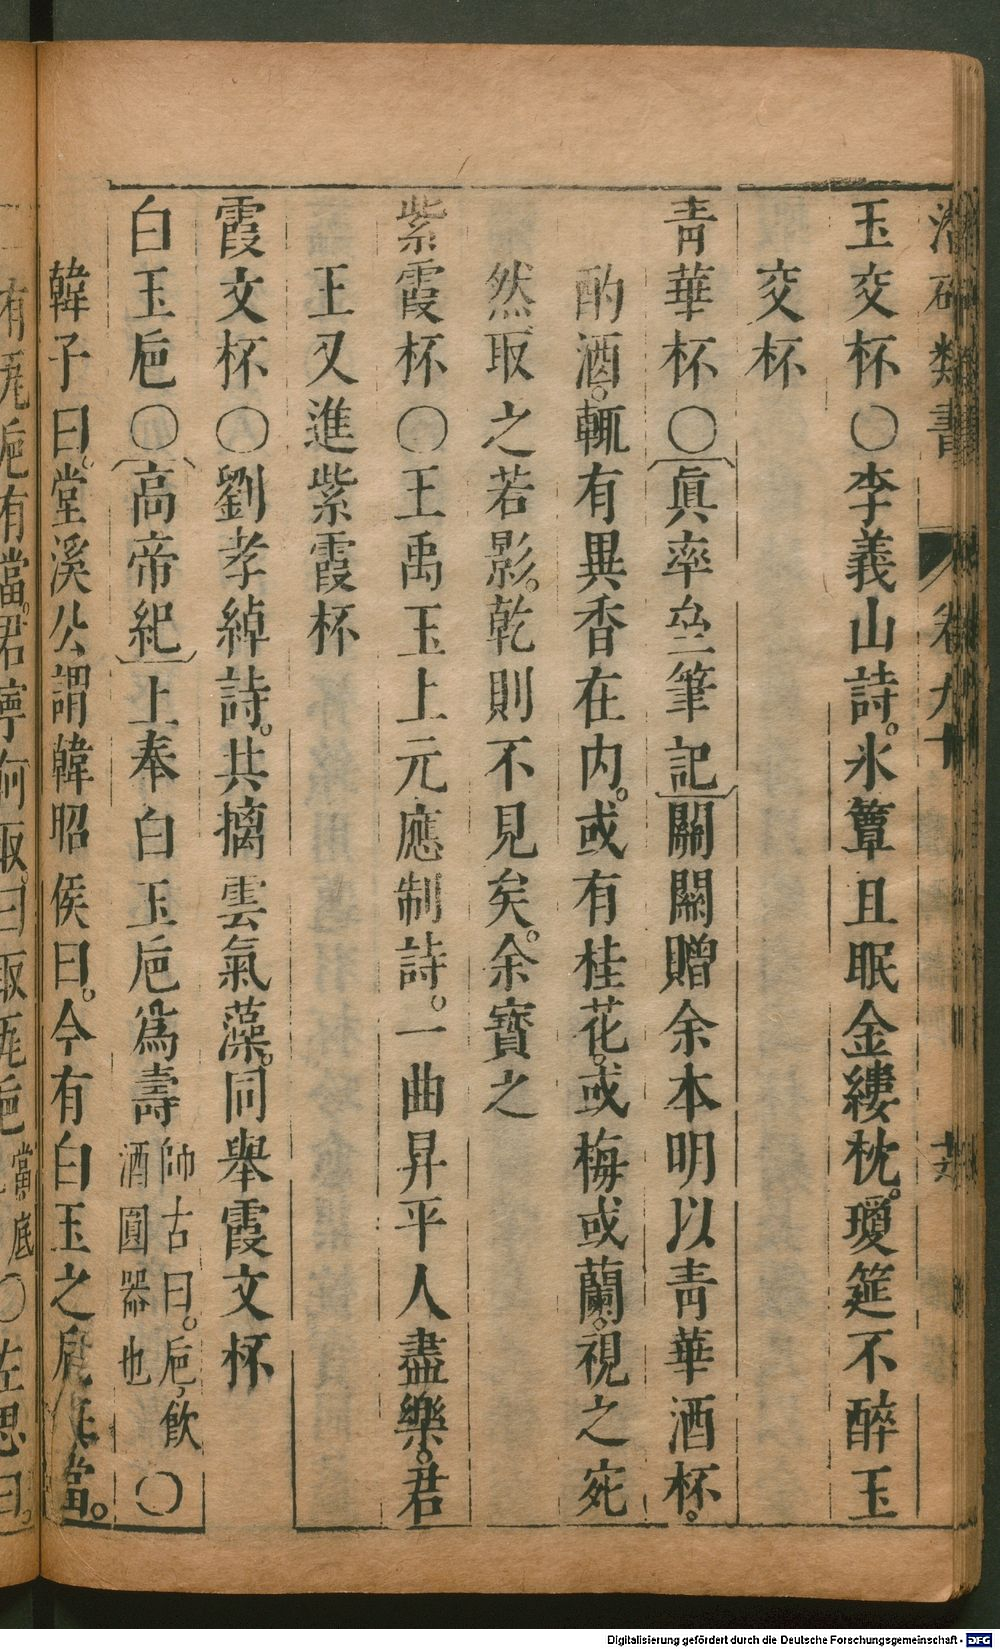 類書 卷九十
玉交杯〇李義山詩。氷簟且眠金縷枕。瓊筵不醉玉
交杯
靑華杯〇眞率筆記關關贈余本明以靑華酒杯。
酌酒。輒有異香在内。或有桂花。或梅或蘭。視之宛
然取之若影。乾則不見矣。余寶之
紫霞杯〇王禹玉上元應制詩。一曲昇平人盡樂。君
王又進紫霞杯
霞文杯〇劉孝綽詩。共摛雲氣藻。同舉霞文杯
白玉巵〇高帝紀上奉白玉巵爲壽師古曰。巵，飮酒圓器也〇
韓子曰。堂溪公謂韓昭侯曰。今有白玉之巵無當。
有瓦巵有當。君寧何取。曰取瓦巵當底〇左思曰。
Digitalisierung gefördert durch die Deutsche Forschungsgemeinschaft - DFG